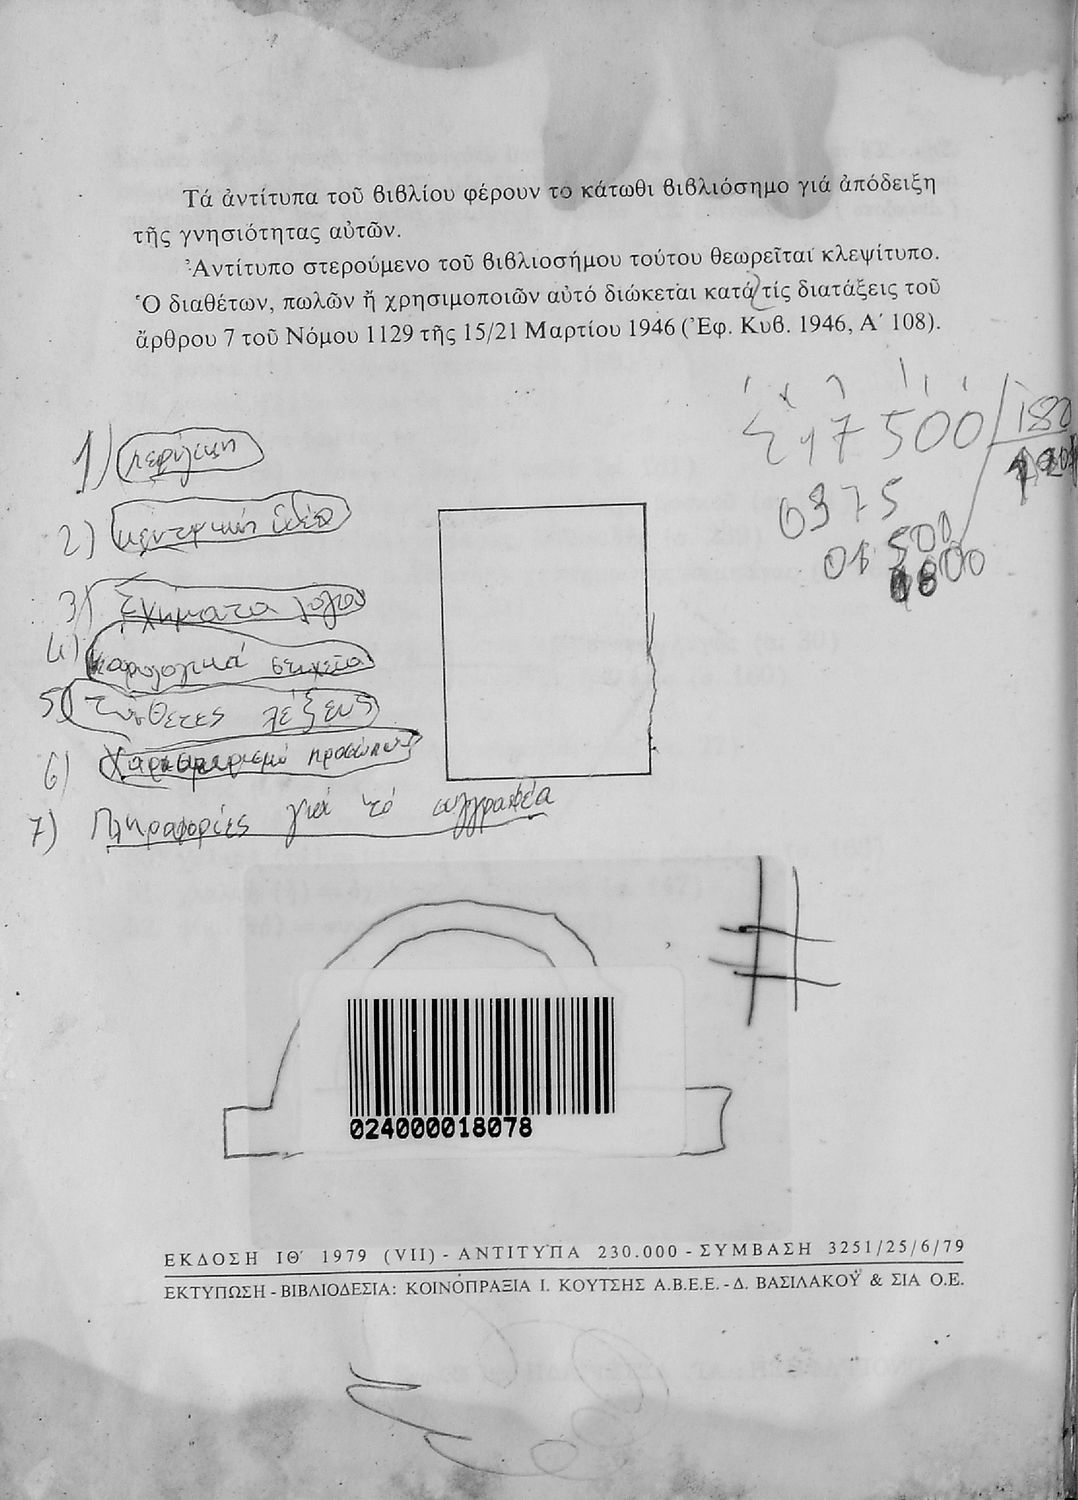 Τά ἀντίτυπα τοῦ βιβλίου φέρουν τό κάτωθι βιβλιόσημο γιά ἀπόδειξη
τῆς γνησιότητας αὐτῶν.
Ἀντίτυπο στερούμενο τοῦ βιβλιοσήμου τούτου θεωρεῖται κλεψίτυπο.
Ὁ διαθέτων, πωλῶν ἤ χρησιμοποιῶν αὐτό διώκεται κατά τίς διατάξεις τοῦ
ἄρθρου 7 τοῦ Νόμου 1129 τῆς 15/21 Μαρτίου 1946 (Ἐφ. Κυβ. 1946, Α΄ 108).
17500 180
0375
500
1) περίληψη
2) κεντρική ἰδέα
3) Σχήματα λόγου
4) στοιχεῖα
5) Σύνθετες λέξεις
6) προσώπων
7) Πληροφορίες γιά τό συγγραφέα
024000018078
ΕΚΔΟΣΗ ΙΘ΄ 1979 (VII) - ΑΝΤΙΤΥΠΑ 230.000 - ΣΥΜΒΑΣΗ 3251/25/6/79
ΕΚΤΥΠΩΣΗ - ΒΙΒΛΙΟΔΕΣΙΑ: ΚΟΙΝΟΠΡΑΞΙΑ Ι. ΚΟΥΤΣΗΣ Α.Β.Ε.Ε. - Δ. ΒΑΣΙΛΑΚΟΥ & ΣΙΑ Ο.Ε.